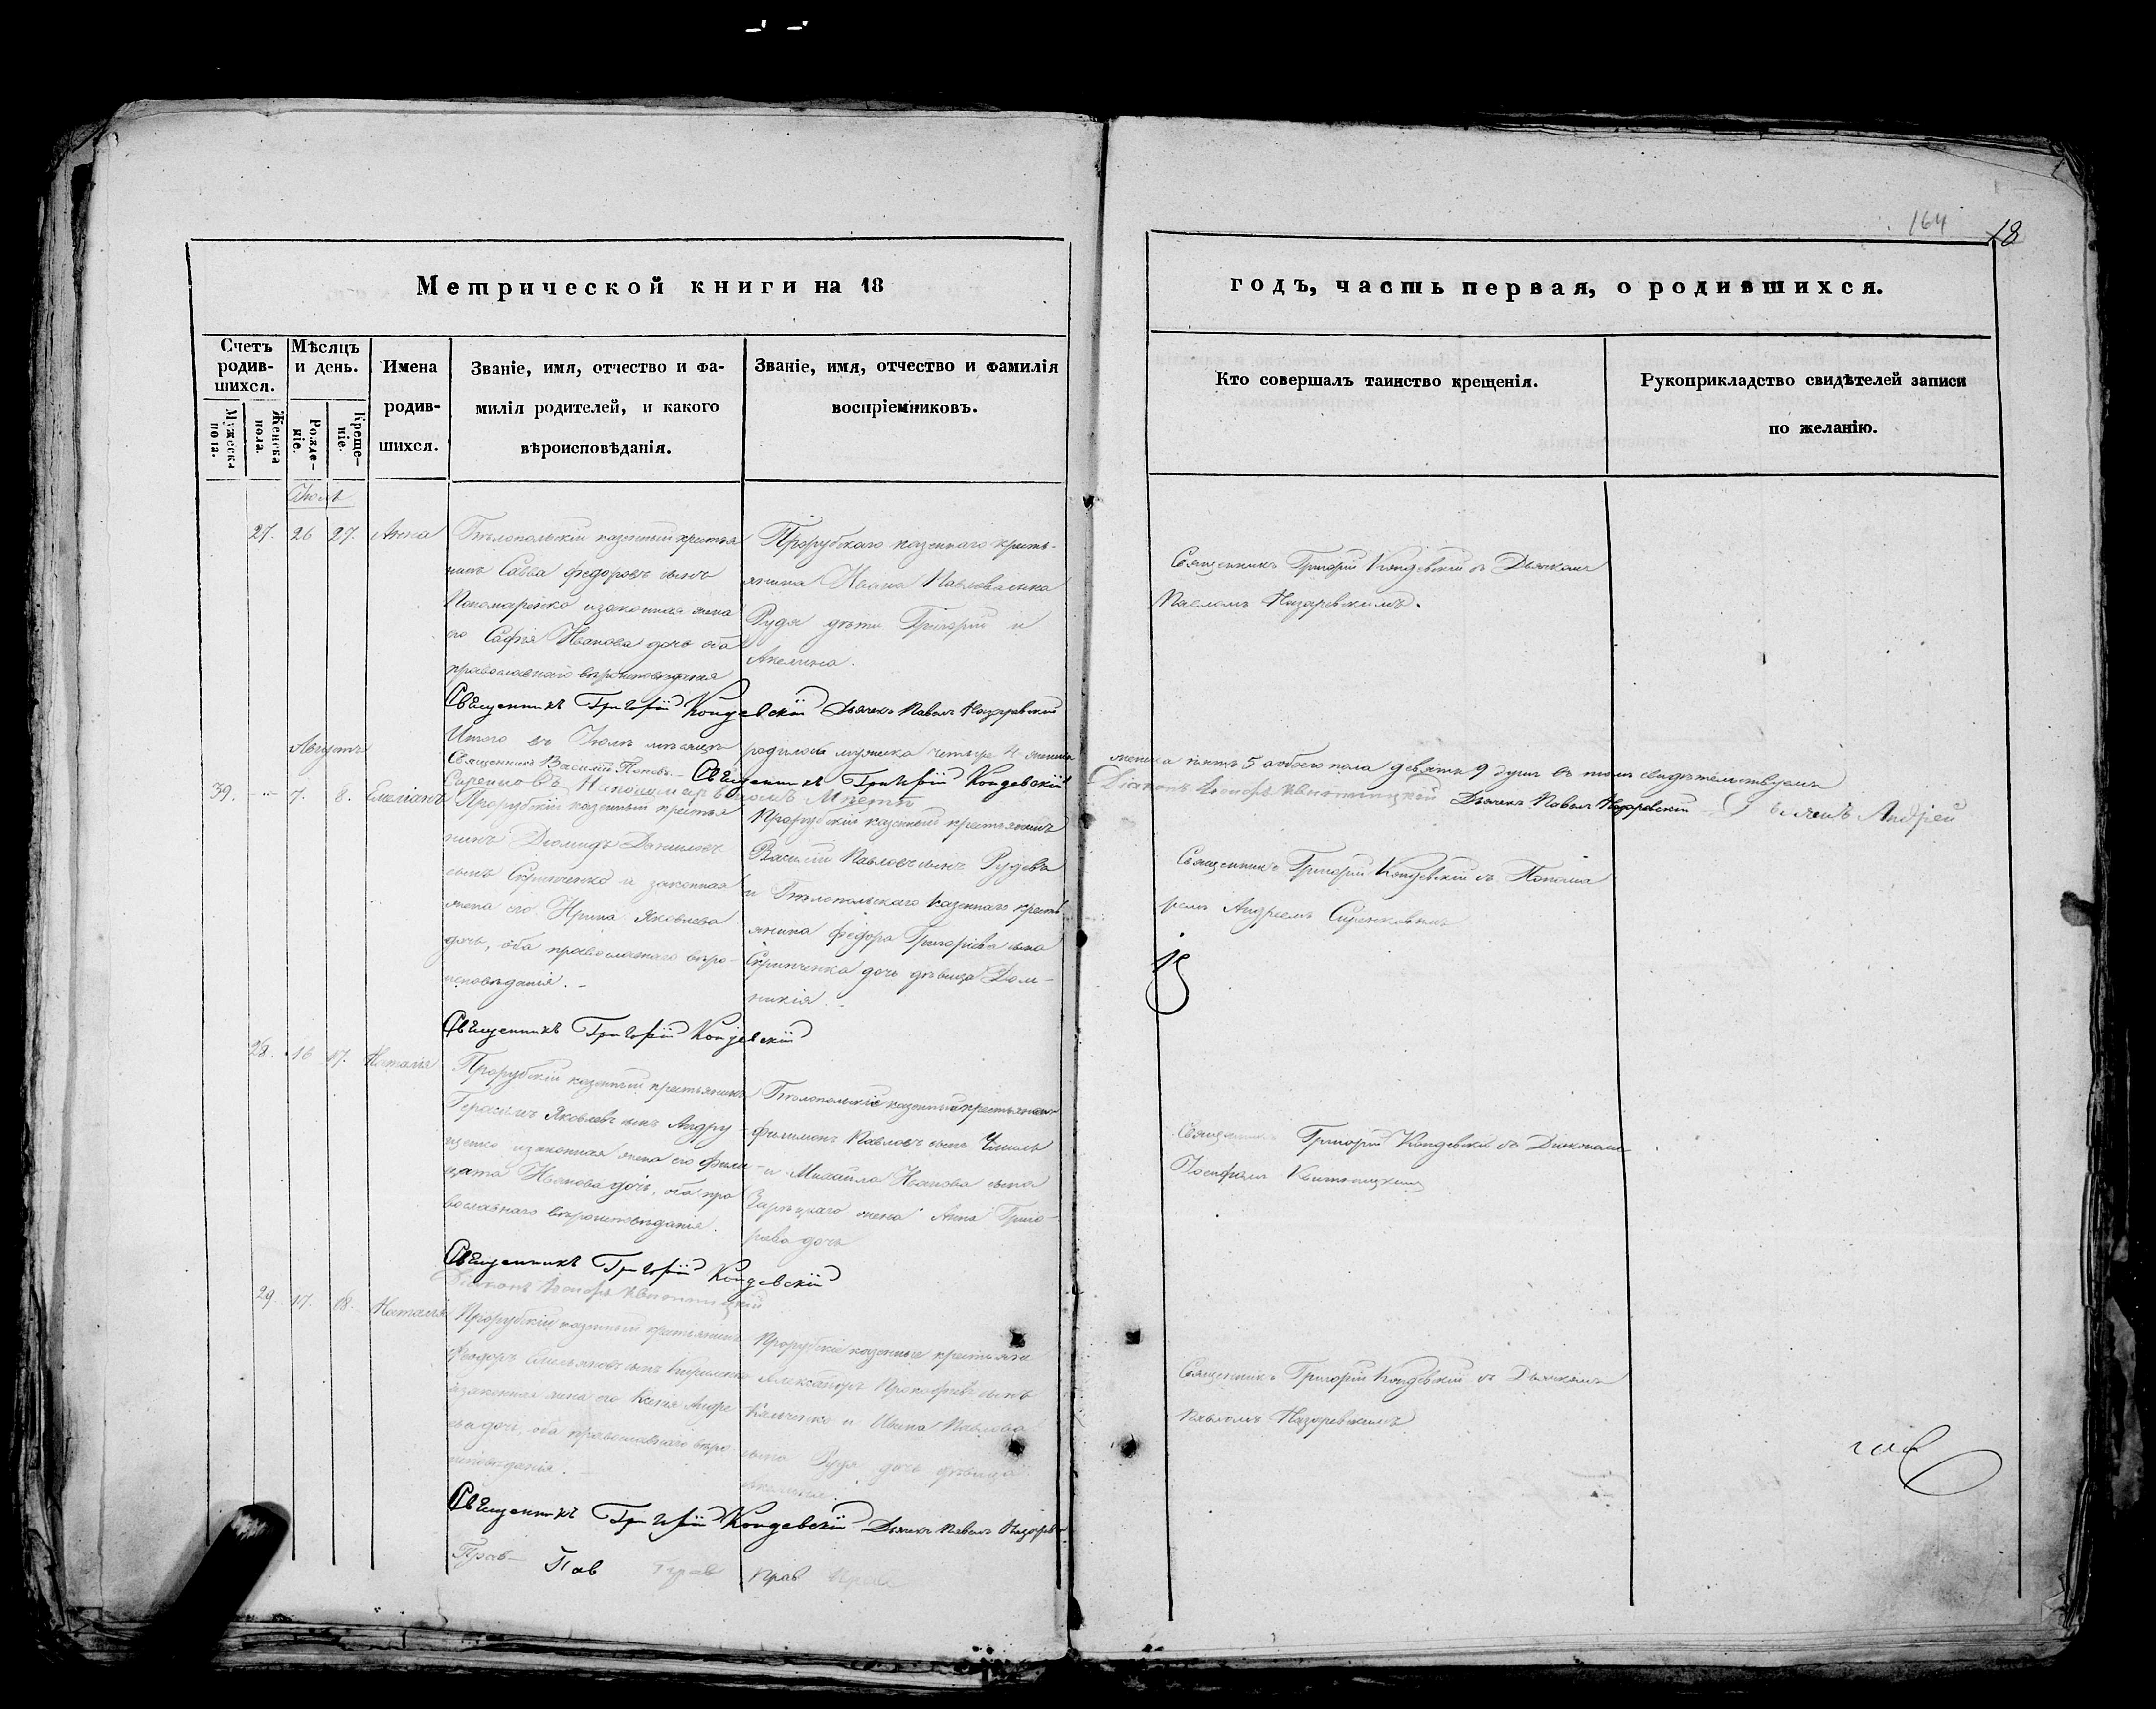 164
18
Метрической книги на 18
годъ, часть первая, о родившихся.
Счетъ родив-
шихся.
Мужеска пола.
Женска пола.
Мѣсяцъ
и день.
Рожде-
ніе.
Креще-
ніе.
Имена
родив-
шихся.
Званіе, имя, отчество и фа-
милія родителей, и какого
вѣроисповѣданія.
Званіе, имя, отчество и фамилія
воспріемниковъ.
Кто совершалъ таинство крещенія.
Рукоприкладство свидѣтелей записи
по желанію.
Іюль
27. 26 27. Анна
Бѣлопольскій казенный крестья
нинъ Савва Федоровъ сынъ
Пономаренко и законная жена
его Софія Иванова дочь оба
православнаго вѣроисповѣданія
Прорубскаго казеннаго кресть-
янина Ивана Павлова сына
Рудя дѣти Григорій и
Акелина.
Священникъ Григорій Кондевскій съ Дьячкомъ
Павломъ Назаревскимъ.
Священникъ Григорій Кондевскій Дьячекъ Павелъ Назаревскій
Итого въ Іюлѣ мѣсяцѣ родилось мужска четыре 4 женска
женска пять 5 а обоего пола девять 9 душъ въ томъ свидѣтельствуемъ
Священникъ Василій Поповъ. Священникъ Григорій Кондевскій
Діаконъ Іосифъ Дьячекъ Павелъ Назаревскій Андрей
Августъ
39. 7. 8. Емеліанъ
Прорубскій казенный крестья
нинъ Діомидъ Даниловъ
сынъ Скрипченко и законная
жена его Ирина Яковлева
дочь, оба православнаго вѣро-
исповѣданія.
Прорубскій казенный крестьянинъ
Василій Павловъ сынъ Рудевъ
и Бѣлопольскаго казеннаго кресть
янина Федора Григоріева сына
Скрипченка дочь дѣвица Дом-
никія.
Священникъ Григорій Кондевскій съ Понома
ремъ Андреемъ Сиренковымъ
Священникъ Григорій Кондевскій
28. 16 17. Наталія
Прорубскій казенный крестьянинъ
Герасимъ Яковлевъ сынъ Андру-
щенко и законная жена его Фили
цата Иванова дочь, оба пра
вославнаго вѣроисповѣданія.
Бѣлопольскіе казенный крестьянинъ
Филимонъ Павловъ сынъ Чмиль
и Михаила Иванова сына
Зарѣцкаго жена Анна Григо-
рьева дочь
Священникъ Григорій Кондевскій съ Діакономъ
Іосифомъ
Священникъ Григорій Кондевскій
Діаконъ Іосифъ
29. 17. 18. Наталія
Прорубскій казенный крестьянинъ
Феодоръ Емельяновъ сынъ
и законная жена его Ксенія Андре
ева дочь, оба православнаго вѣро
исповѣданія.
Прорубскіе казенные крестьяне
Александръ Прокофьевъ сынъ
и Ивана Павлова
сына Рудя дочь дѣвица
Священникъ Григорій Кондевскій съ Дьячкомъ
Павломъ Назаревскимъ
Священникъ Григорій Кондевскій Дьячекъ Павелъ